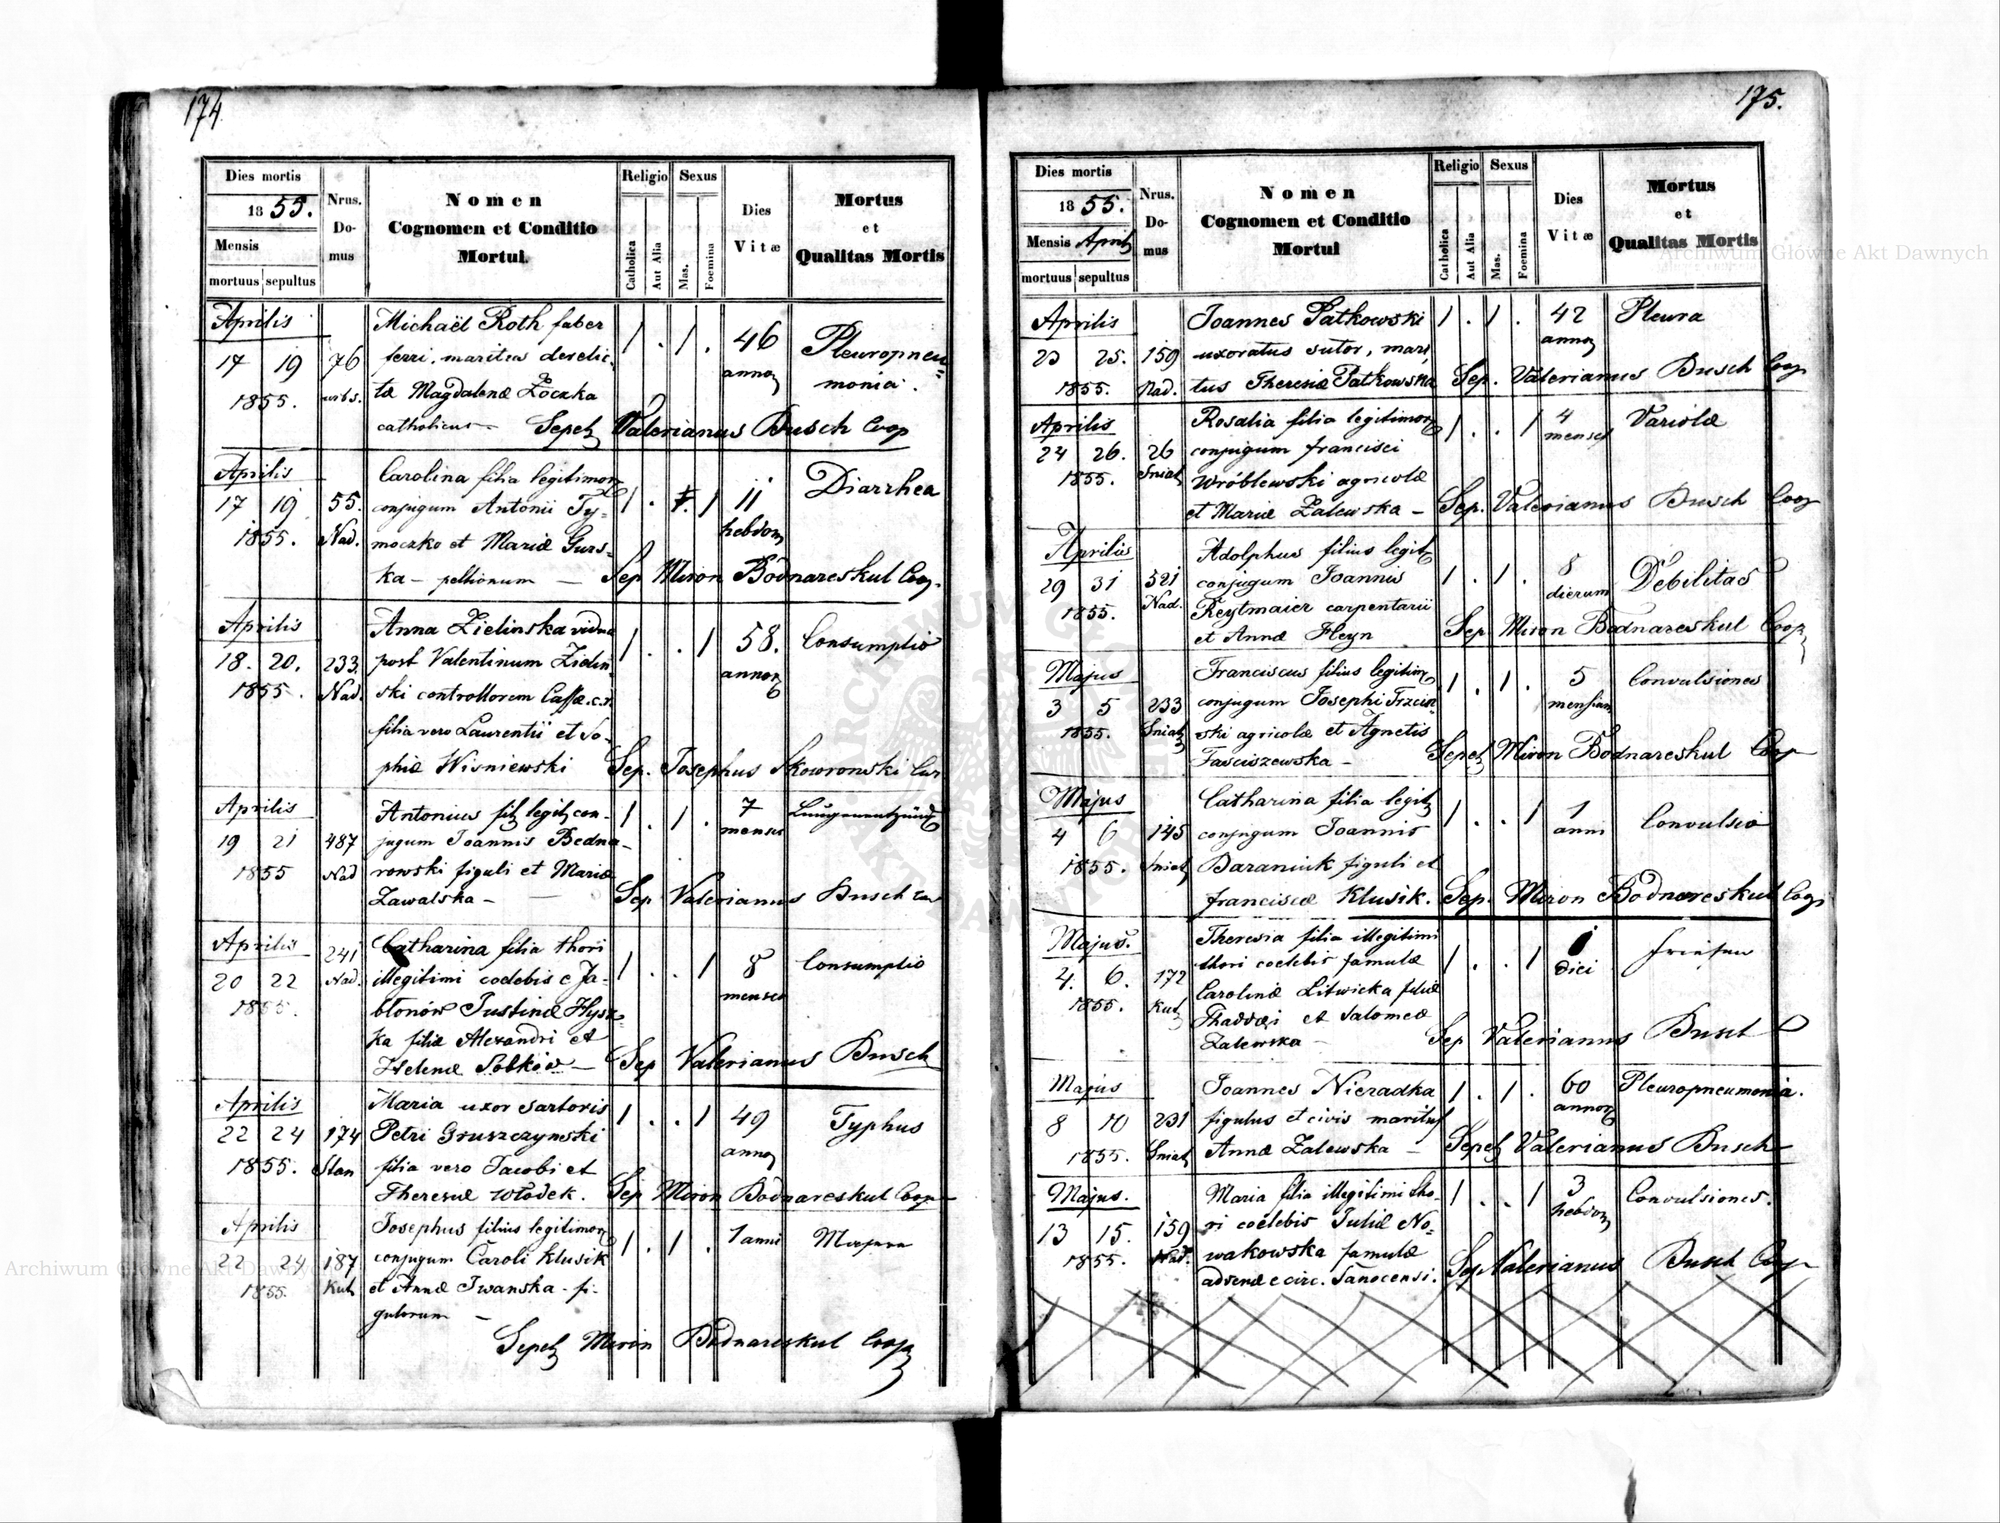 174
Dies mortis
1855.
Mensis
mortuus sepultus
Nrus. Do- mus
Nomen
Cognomen et Conditio
Mortui.
Religio
Catholica
Aut Alia
Sexus
Mas.
Foemina
Dies
Vitæ
Mortus
et
Qualitas Mortis
Aprilis
17 19 76
1855. urbs.
Michaël Roth faber
ferri, maritus derelic-
tæ Magdalenæ Zoczka
catholicus
1 . 1 .
46
annor
Pleuropneu=
monia.
Sepel Valerianus Busch Coop
Aprilis
17 19 55.
1855. Nad.
Carolina filia legitimor
conjugum Antonii Ty=
moczko et Mariæ Gurs-
ka – pellionum –
1 . 1
11
hebdom
Diarrhea
Sep Miron Bodnareskul Coop.
Aprilis
18. 20. 233.
1855. Nad.
Anna Zielinska vidua
post Valentinum Zielin
ski controllorem Cassæ c.r.
filia vero Laurentii et So-
phiæ Wisniewski
1 . . 1
58.
annor
Consumptio
Sep. Josephus Skowronski Cur
Aprilis
19 21 487
1855 Nad
Antonius fil legit con-
jugum Joannis Bedna-
rowski figuli et Mariæ
Zawalska –
1 . 1 .
7
menses
Lungenentzünd
Sep Valerianus Busch
Aprilis
20 22 241
1855. Nad.
Catharina filia thori
illegitimi coelebis e Ja-
błonów Justinæ Hysz
ka filiæ Alexandri et
Helenæ Sobków –
1 . . 1
8
menses
Consumptio
Sep Valerianus Busch
Aprilis
22 24 174
1855. Stan
Maria uxor sartoris
Petri Gruszczynski
filia vero Jacobi et
Theresiæ Włodek.
1 . . 1
49
annor
Typhus
Sep Miron Bodnareskul Coop
Aprilis
22 24 187
1855. Kut
Josephus filius legitimor
conjugum Caroli Klusik
et Annæ Iwanska – fi-
gulorum –
1 . 1 .
1 anni
Sepel Miron Bodnareskul Coop
175.
Dies mortis
1855.
Mensis April
mortuus sepultus
Nrus. Do- mus
Nomen
Cognomen et Conditio
Mortui
Religio
Catholica
Aut Alia
Sexus
Mas.
Foemina
Dies
Vitæ
Mortus
et
Qualitas Mortis
Aprilis
23 25. 159
1855. Nad.
Joannes Patkowski
uxoratus sutor, mari
tus Theresiæ Patkowska
1 . 1 .
42
annor
Pleura
Sep. Valerianus Busch Coop
Aprilis
24 26. 26
1855. Sniat
Rosalia filia legitimor
conjugum Francisci
Wróblewski agricolæ
et Mariæ Zalewska –
1 . . 1
4
menses
Variolæ
Sep. Valerianus Busch Coop
Aprilis
29 31 521
1855. Nad.
Adolphus filius legit
conjugum Joannis
Reytmaier carpentarii
et Annæ Heyn
1 . 1 .
8
dierum
Debilitas
Sep Miron Bodnareskul Coop
Majus
3 5 233
1855. Sniat
Franciscus filius legitim
conjugum Josephi Trzcin=
ski agricolæ et Agnetis
Faściszewska –
1 . 1 .
5
mensium
Convulsiones
Sepel Miron Bodnareskul Coop
Majus
4 6 145
1855. Sniat
Catharina filia legit
conjugum Joannis
Baraniuk figuli et
Franciscæ Klusik.
1 . . 1
1
anni
Convulsio
Sep. Miron Bodnareskul Coop
Majus.
4. 6. 172
1855. Kut
Theresia filia illegitimi
thori coelebis famulæ
Carolinæ Litwicka filiæ
Thaddæi et Salomeæ
Zalewska
1 . . 1
diei
Sep Valerianus Busch C
Majus
8 10 231
1855. Sniat
Joannes Nieradka
figulus et civis maritus
Annæ Zalewska –
1 . 1 .
60
annor
Pleuropneumonia.
Sepel Valerianus Busch
Majus.
13 15. 159
1855. Nad.
Maria filia illegitimi tho-
ri coelebis Juliæ No=
wakowska famulæ
advenæ e circ. Sanocensi.
1 . . 1
3
hebdom
Convulsiones.
Sep Valerianus Busch Coop
Archiwum Główne Akt Dawnych
Archiwum Główne Akt Dawnych
ARCHIWUM GŁÓWNE AKT DAWNYCH